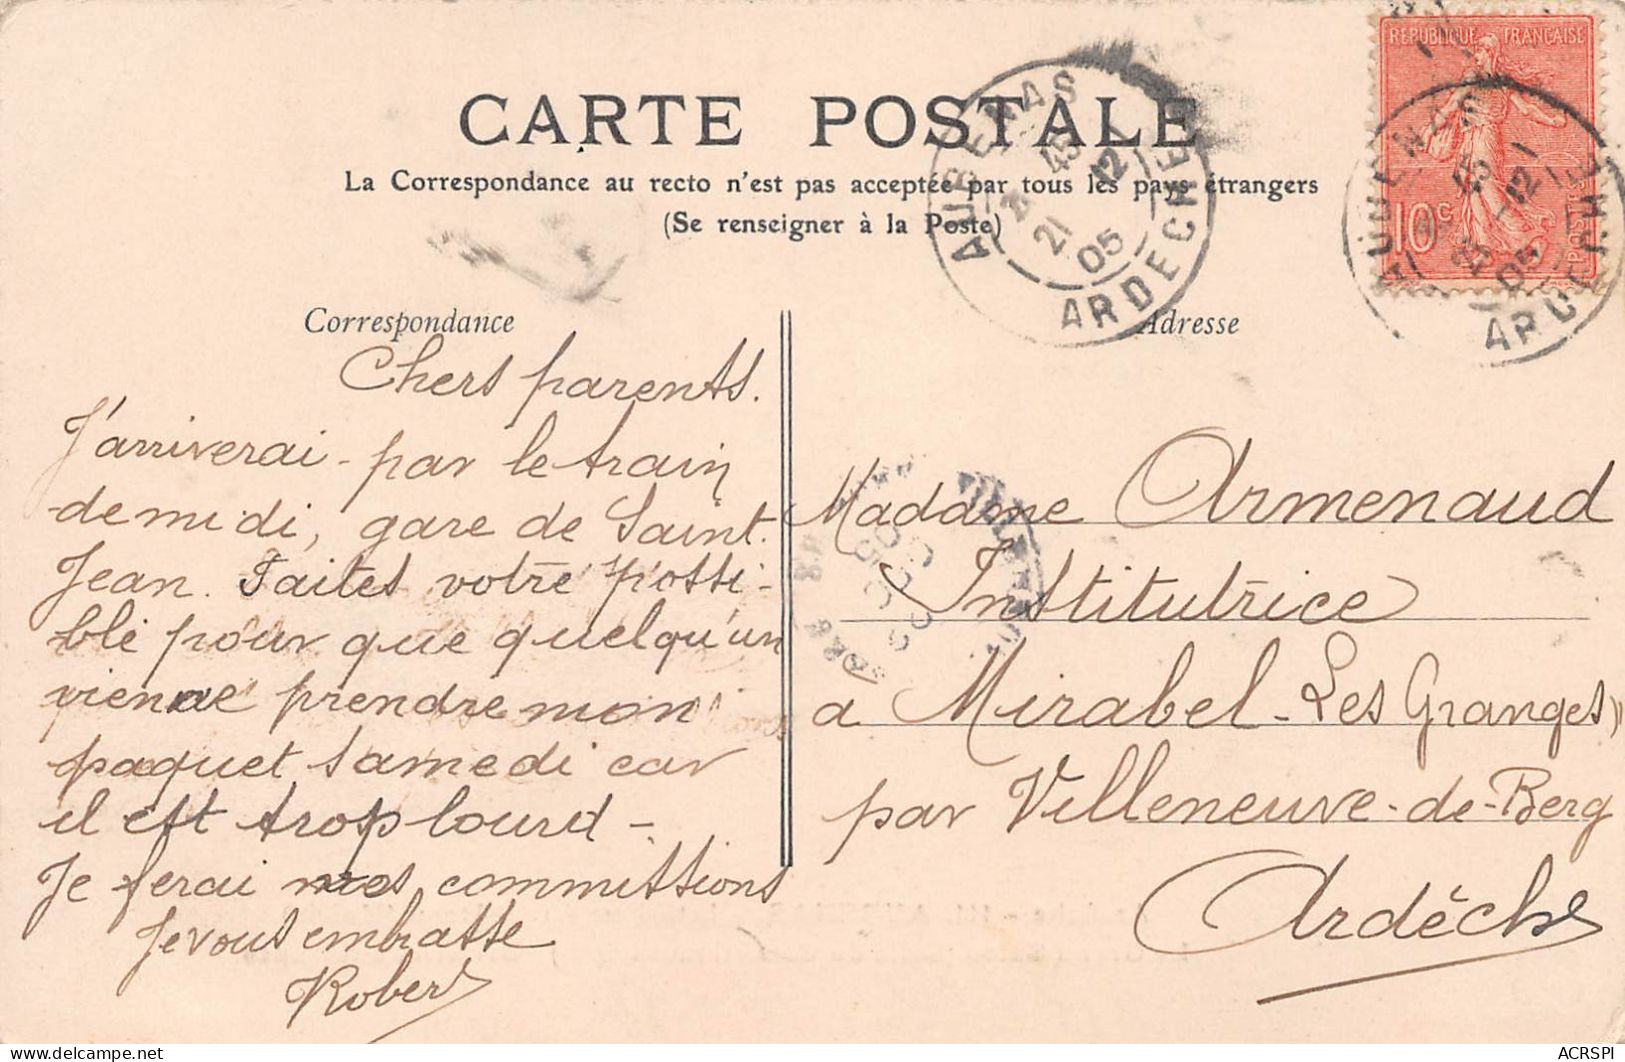 CARTE POSTALE
La Correspondance au recto n'est pas acceptée par tous les pays étrangers
(Se renseigner à la Poste)
REPUBLIQUE FRANÇAISE
10c
POSTES
AUBENAS
45
21 12
05
ARDECHE
AUBENAS
45
12
05
ARDECHE
Correspondance
Chers parents.
J'arriverai - par le train
de midi, gare de Saint
Jean. Faites votre possi-
ble pour que quelqu'un
vienne prendre mon
paquet samedi car
il est trop lourd -
Je ferai vos commissions
Je vous embrasse
Robert
Adresse
Madame Armenaud
Institutrice
a Mirabel - Les Granges
par Villeneuve-de-Berg
Ardèche
ACRSPI